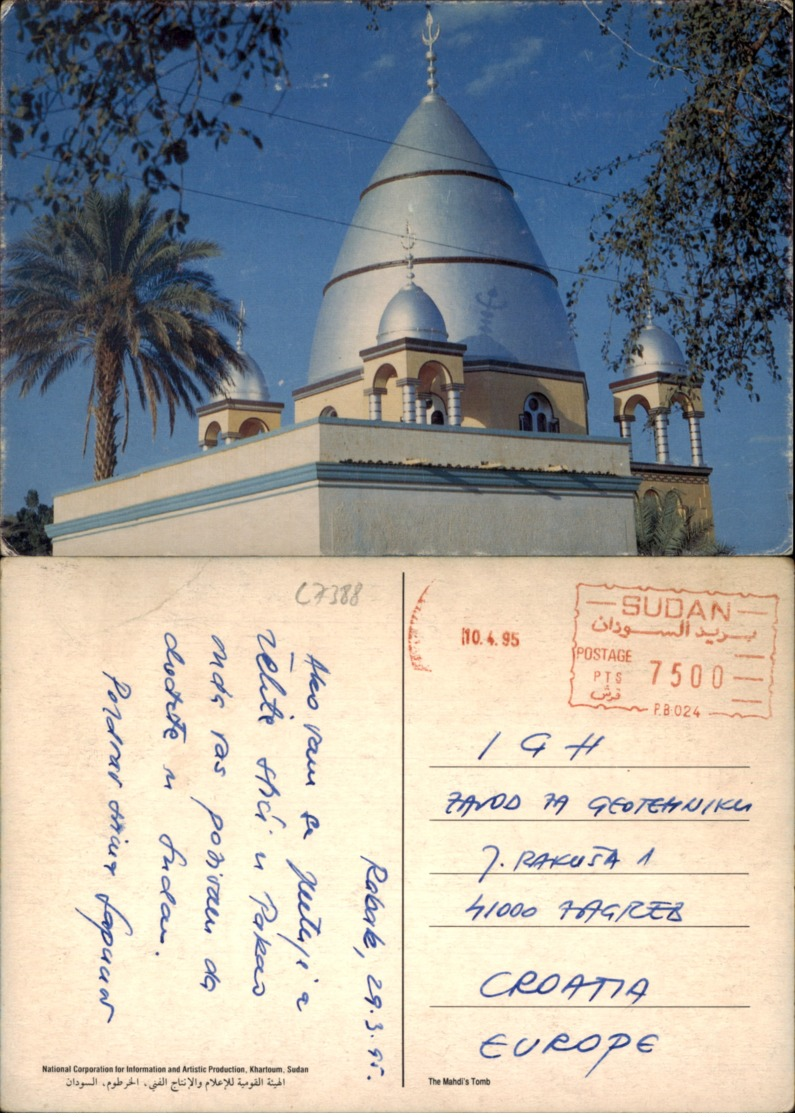 C7388
Rabak, 29.3.95.
Ako vam se
želite ići u Pakao
onda vas pozivam da
dođete u Sudan.
Pozdrav svima
10.4.95
SUDAN
بريد السودان
POSTAGE
PTS 7500
قرش
P.B.024
IGH
ZAVOD ZA GEOTEHNIKU
J. RAKUŠA 1
41000 ZAGREB
CROATIA
EUROPE
National Corporation for Information and Artistic Production, Khartoum, Sudan
الهيئة القومية للإعلام والإنتاج الفني، الخرطوم، السودان
The Mahdi's Tomb